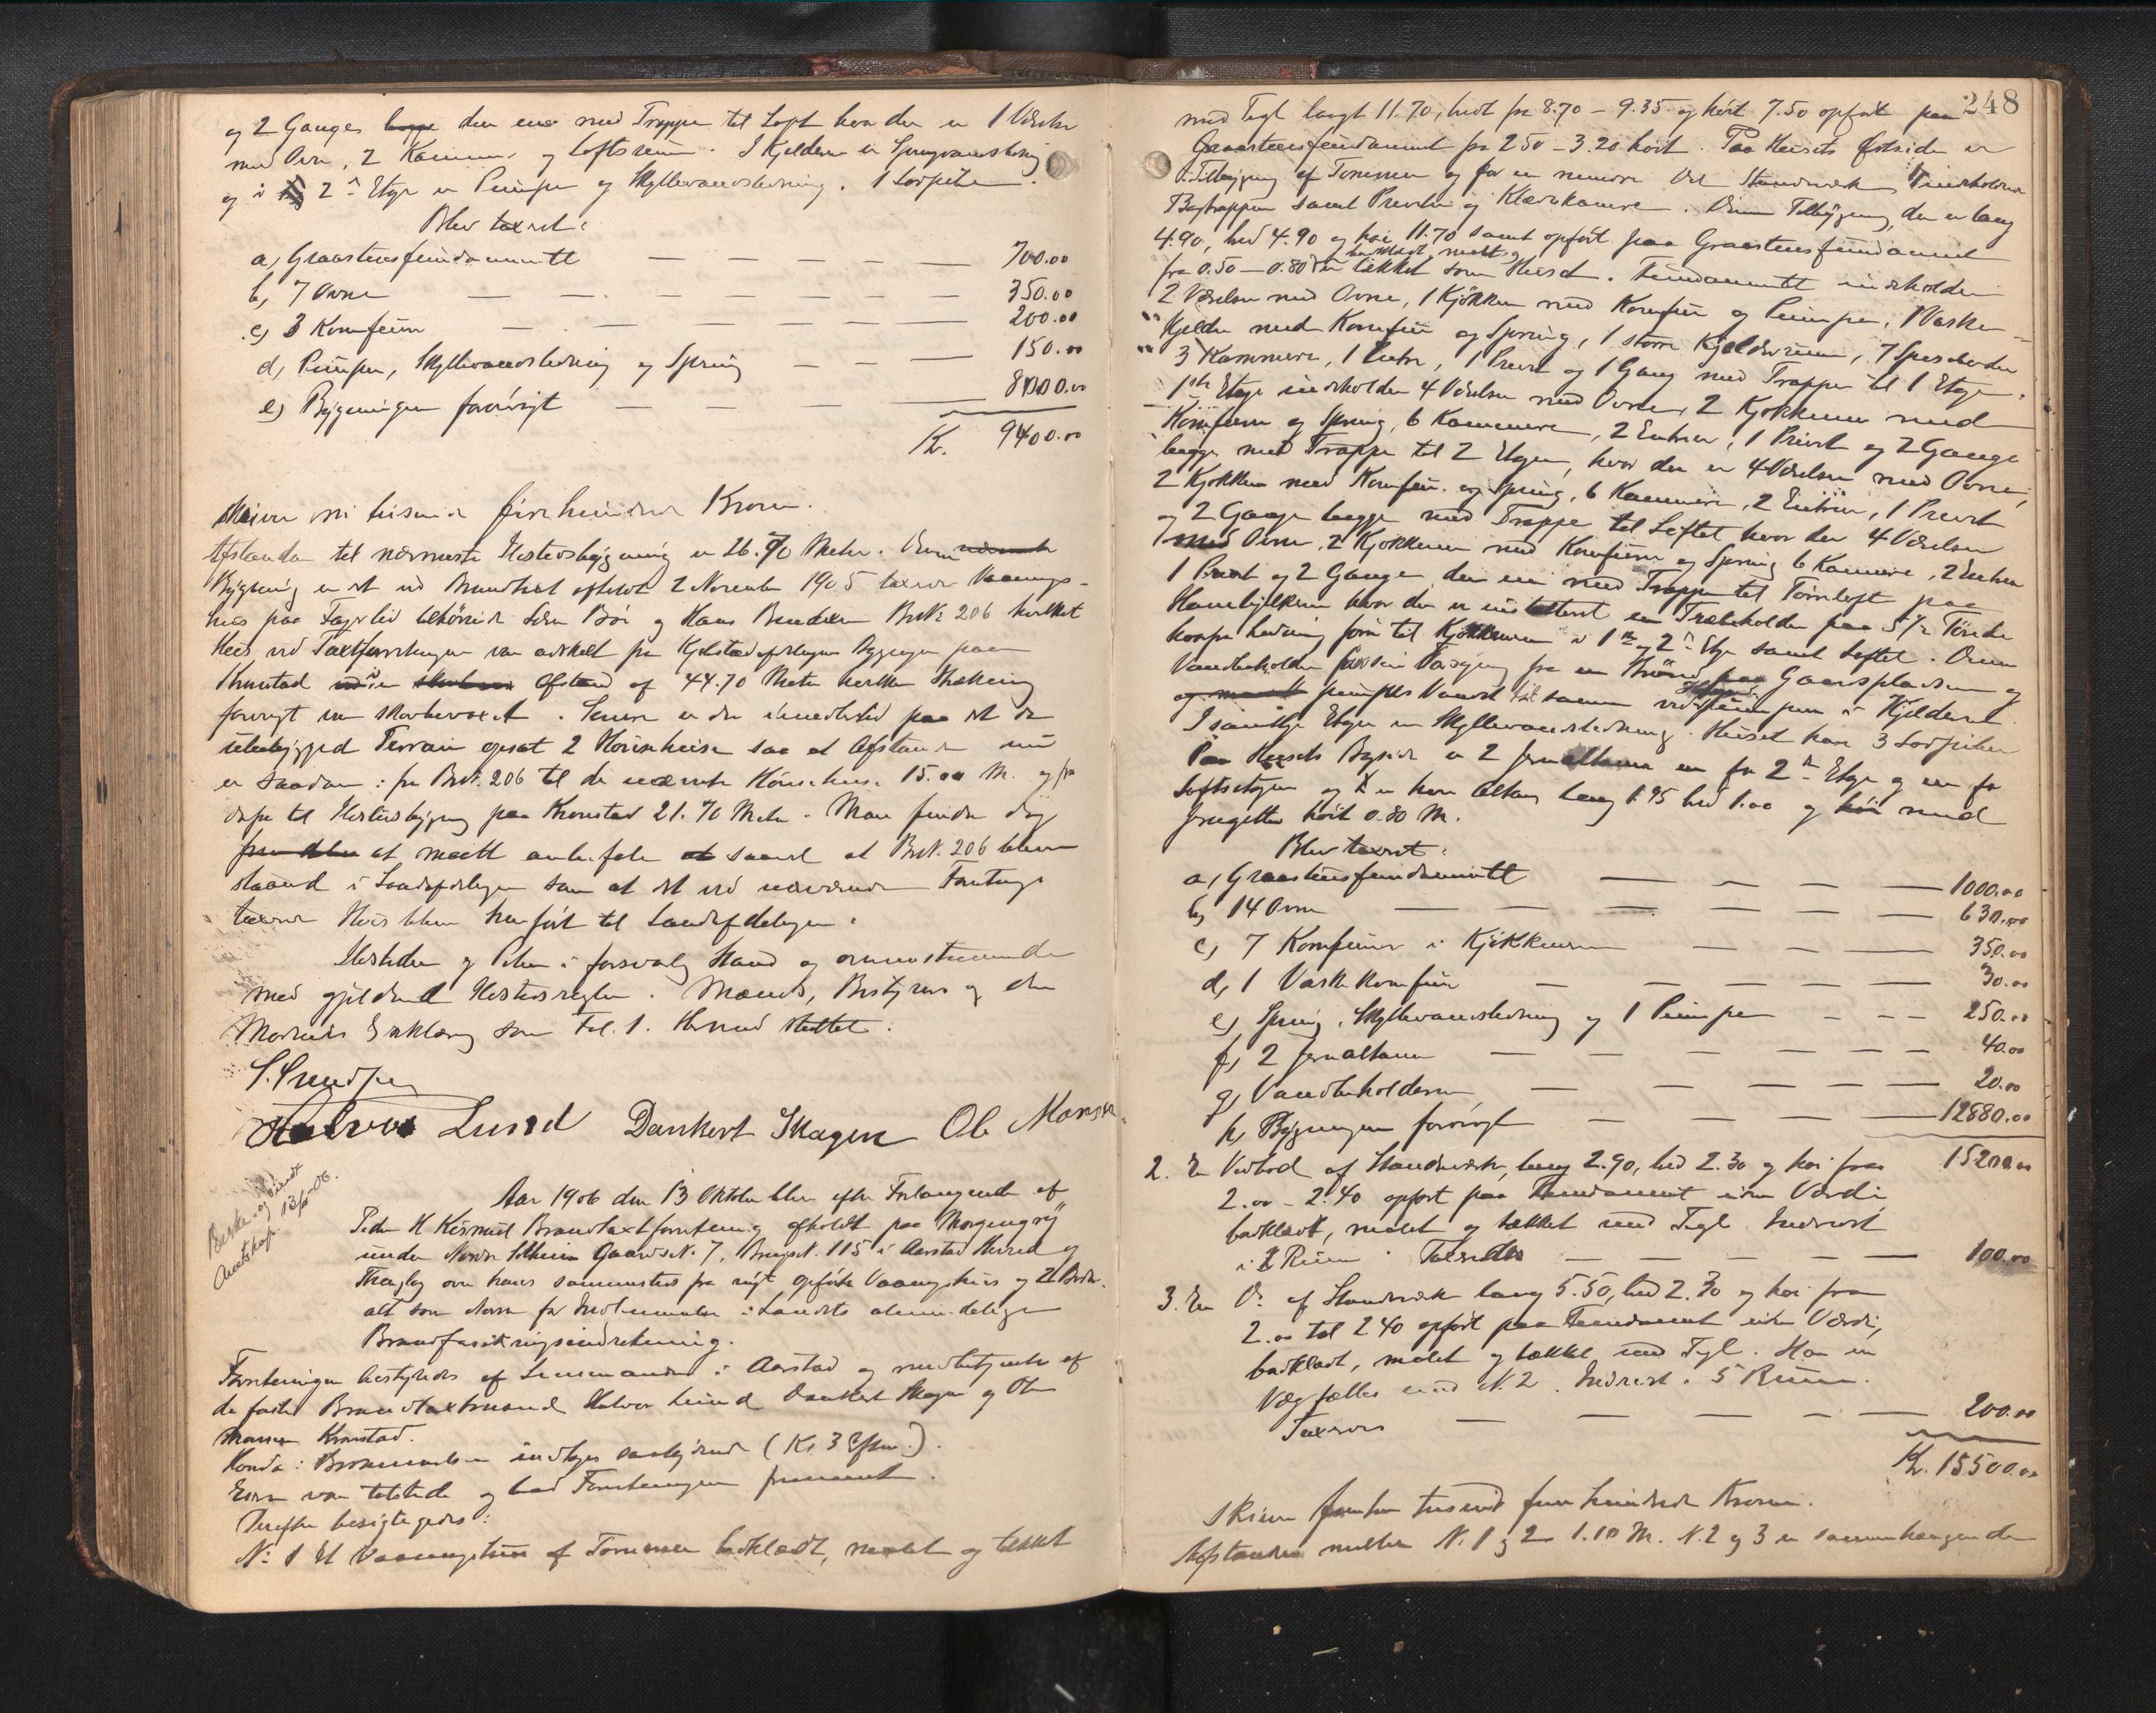 og 2 Gange den ene med Trappe til Loft hvor der er 1 Værelse
med Ovn, 2 Kammer og Loftsrum. I Kjelderen er Springvandsledning
og i 2n Etage er Pumpe og Skyllevandsledning. 1 Lodpibe.
Blev taxeret:
a, Graastensfundamentet — — — — — 700.00
b, 7 Ovne — — — — — — 350.00
c, 3 Komfur — — — — — 200.00
d, Pumpe, Skyllevandsledning og Spring — — — 150.00
e, Bygningen forøvrigt — — — — 8000.00
Kr. 9400.00
skriver ni tusinde fire hundrede Kroner.
Afstanden til nærmeste Nabobygning er 26.70 Meter. Denne
Bygning er et ved Brandtaxt afholdt 2 November 1905 taxeret Vaanings-
hus paa Fagerlid tilhørende Søren Bøe og Hans Bendixen BrNo 206 hvilket
Hus ved Taxtforretningen var adskilt fra Kjøbstadafdelingens Bygninger paa
Kronstad ved en Afstand af 44.70 Meter hvilken Strækning
forøvrigt var skovbevoxet. Senere er der imidlertid paa det da
ubebyggede Terrain opsat 2 Hønsehuse saa at Afstanden nu
er saadan: fra BrN. 206 til det nærmeste Hønsehus 15.00 M. og fra
dette til bygning paa Kronstad 21.70 Meter. Man finder dog
at maatte anbefale saavel at BrN. 206 bliver
staaende i Landafdelingen som at det ved nærværende Forretning
taxerede Hus bliver henført til Landafdelingen.
Ildsteder og Piber i forsvarlig Stand og overensstemmende
med gjældende Ildstedsregler. Mænds, Bestyrers og
Erklæring som Fol. 1. Hermed sluttet.
Halvor Lund Dankert Skagen Ole Monsen
Besk. og sendt
Amtskap. 13/10 06.
Aar 1906 den 13 Oktober blev efter Forlangende af
Peder H Brandtaxtforretning afholdt paa Morgengry
under Nordre Solheim Gaards N. 7, Brugs N. 115 i Aarstad Herred og
Thinglag over hans sammesteds fra nyt opførte Vaaningshus og 2 Boder
alt som Norm for Indlemmelse i Landets almindelige
Brandforsikringsindretning.
Forretningen bestyredes af Lensmanden i Aarstad og medbetjentes af
de faste Brandtaxtmænd Halvor Lund Dankert Skagen og Ole
Monsen Kronstad.
indtoges saalydende (Kr 3 ).
Eieren var tilstede og bad Forretningen fremmet.
Derefter besigtigedes:
No 1 Et Vaaningshus af Tømmer bordklædt, malet og tækket
248
med Tegl langt 11.70, bredt fra 8.70 – 9.35 og høit 7.50 opført paa
Graastensfundament fra 2.50 – 3.20 høit. Paa Husets Østside er
Tilbygning af Tømmer og for en mindre Del Standværk, indeholder
Bagtrappen samt Priveter og Klædekamre. Denne Tilbygning, der er lang
4.90, bred 4.90 og høi 11.70 samt opført paa Graastensfundament
bordklædt, malet og
fra 0.50 – 0.80 er tækket som Huset. Fundamentet indeholder
2 Værelser med Ovne, 1 Kjøkken med Komfur og Pumpe, 1 Vaske-
kjelder med Komfur og Spring, 1 større Kjelderrum, 7 Spiseboder
3 Kammere, 1 Entre, 1 Privet og 1 Gang med Trappe til 1 Etage.
1ste Etage indeholder 4 Værelser med Ovne, 2 Kjøkkener med
Komfurer og Spring, 6 Kammere, 2 Entreer, 1 Privet og 2 Gange
begge med Trappe til 2 Etage, hvor der er 4 Værelser med Ovne,
2 Kjøkken med Komfur og Spring, 6 Kammere, 2 Entreer, 1 Privet
og 2 Gange begge med Trappe til Loftet hvor der 4 Værelser
med Ovne, 2 Kjøkkener med Komfurer og Spring 6 Kammere, 2 Entreer
1 Privet og 2 Gange, den ene med Trappe til Tørreloft paa
Hanebjelkerne hvor der er installeret en Træbeholder paa 5 1/2 Tønde
hvorfra Ledning fører til Kjøkkenerne i 1ste og 2n Etage samt Loftet. Denne
Vandbeholder faar sin Forsyning fra en Brønd paa Gaardspladsen og
pumpes Vandet til samme ved pumpen i Kjelderen.
I samtlige Etager er Skyllevandsledning. Huset har 3 Lodpiber
Paa Husets Bagside er 2 Jernaltaner en for 2n Etage og en for
Loftsetagen og er hver Altan lang 1.95 bred 1.00 og med
Jerngitter høit 0.80 M.
Blev taxeret:
a, Graastensfundamentet — — — — 1000.00
b, 14 Ovne — — — — — — 630.00
c, 7 Komfurer i Kjøkkenerne — — — 350.00
d, 1 Vaskekomfur — — — — — 30.00
e, Spring, Skyllevandsledning og 1 Pumpe — — — 250.00
f, 2 Jernaltaner — — — — — 40.00
g, Vandbeholderen — — — — 20.00
h, Bygningen forøvrigt — — — — 12880.00
15200.00
2. En Vedbod af Standværk, lang 2.90, bred 2.30 og høi fra
2.00 – 2.40 opført paa Fundament uden Værdi
bordklædt, malet og tækket med Tegl. Indredet
i Rum. Taxeredes — — — — 100.00
3. En Do af Standværk lang 5.50, bred 2.30 og høi fra
2.00 til 2.40 opført paa Fundament uden Værdi,
bordklædt, malet og tækket med Tegl. Har en
Væg fælles med N. 2. Indredet i 5 Rum.
Taxeres — — — — — 200.00
Kr. 15500.00
skriver femten tusind fem hundrede Kroner.
Afstanden mellem N. 1 og 2 1.10 M. N. 2 og 3 er sammenhængende